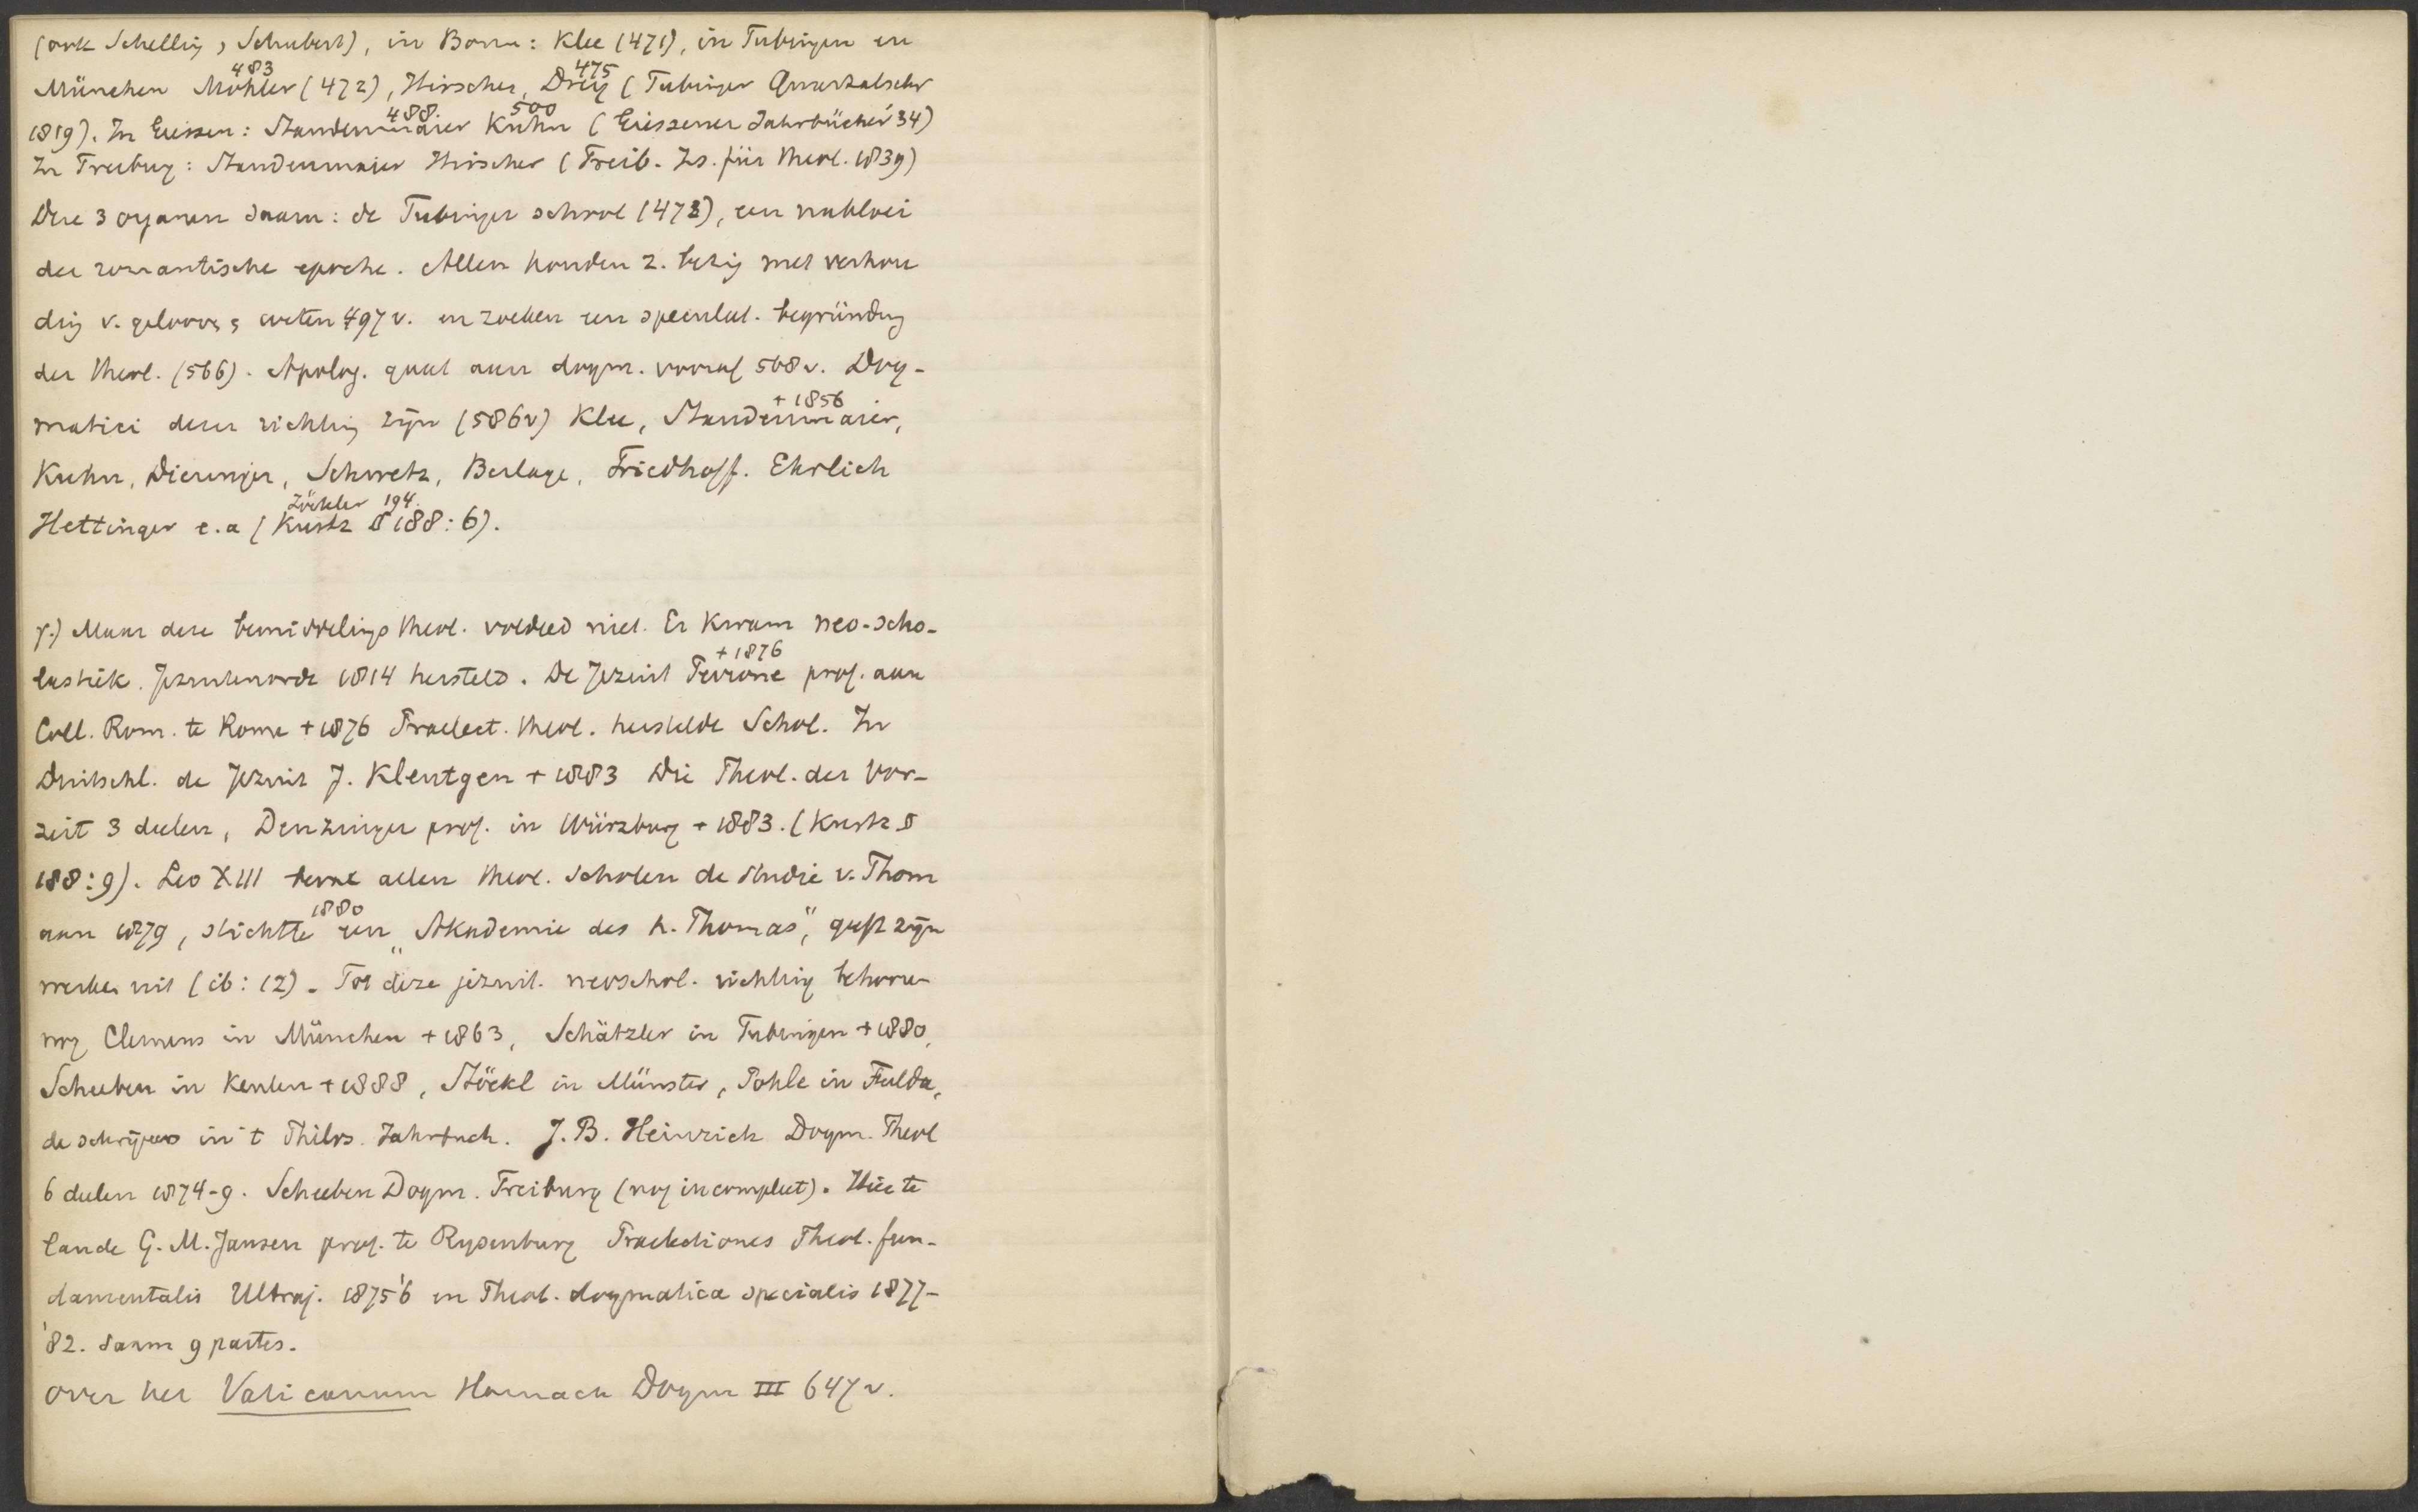 (ook Schelling, Schubert), in Bonn: Klee (471), in Tubingen en
483 475
München Möhler (472), Hirscher, Drey (Tubinger Quartalschr
488. 500
1819). In Giessen: Staudenmaier Kuhn (Giessener Jahrbücher '34)
In Freiburg: Staudenmaier Hirscher (Freib. Zs. für Theol. 1839)
Deze 3 organen saam: de Tubinger school (473), een nabloei
der romantische epoche. Allen houden z. bezig met verhou
ding v. geloov. & weten 497 v. en zoeken een speculat. begründung
der theol. (566). Apolog. gaat aan dogm. vooraf 568 v. Dog-
+ 1856
matici dezer richting zijn (586v) Klee, Staudenmaier,
Kuhn, Dieringer, Schwetz, Berlage, Friedhoff. Ehrlich
Zöckler 194.
Hettinger e.a (Kurtz § 188:6).
γ.) Maar deze bemiddelings theol. voldeed niet. Er kwam neo-scho-
+ 1876
lastiek. Jezuitenorde 1814 hersteld. De Jezuit Perrone prof. aan
Coll. Rom. te Rome + 1876 Praelect. theol. herstelde Schol. In
Duitschl. de Jezuit J. Kleutgen + 1883 Die Theol. der Vor-
zeit 3 deelen, Denzinger prof. in Würzburg + 1883. (Kurtz §
188:9). Leo XIII beval allen theol. scholen de studie v. Thom
1880
aan 1879, stichtte een "Akademie des h. Thomas", geeft zijn
werken uit (ib: 12). Tot deze jezuit. neoschol. richting behoore
nog Clemens in München + 1863, Schätzler in Tubingen + 1880,
Scheeben in Keulen + 1888, Stöckl in Münster, Pohle in Fulda,
de schrijvers in 't Philos. Jahrbuch. J. B. Heinrich Dogm. Theol
6 deelen 1874-9. Scheeben Dogm. Freiburg (nog incompleet). Hier te
lande G. M. Jansen prof. te Rysenburg Praelectiones Theol. fun-
damentalis Ultraj. 1875 '6 en Theol. dogmatica specialis 1877-
'82. saam 9 partes.
over het Vaticanum Harnack Dogm III 647 v.